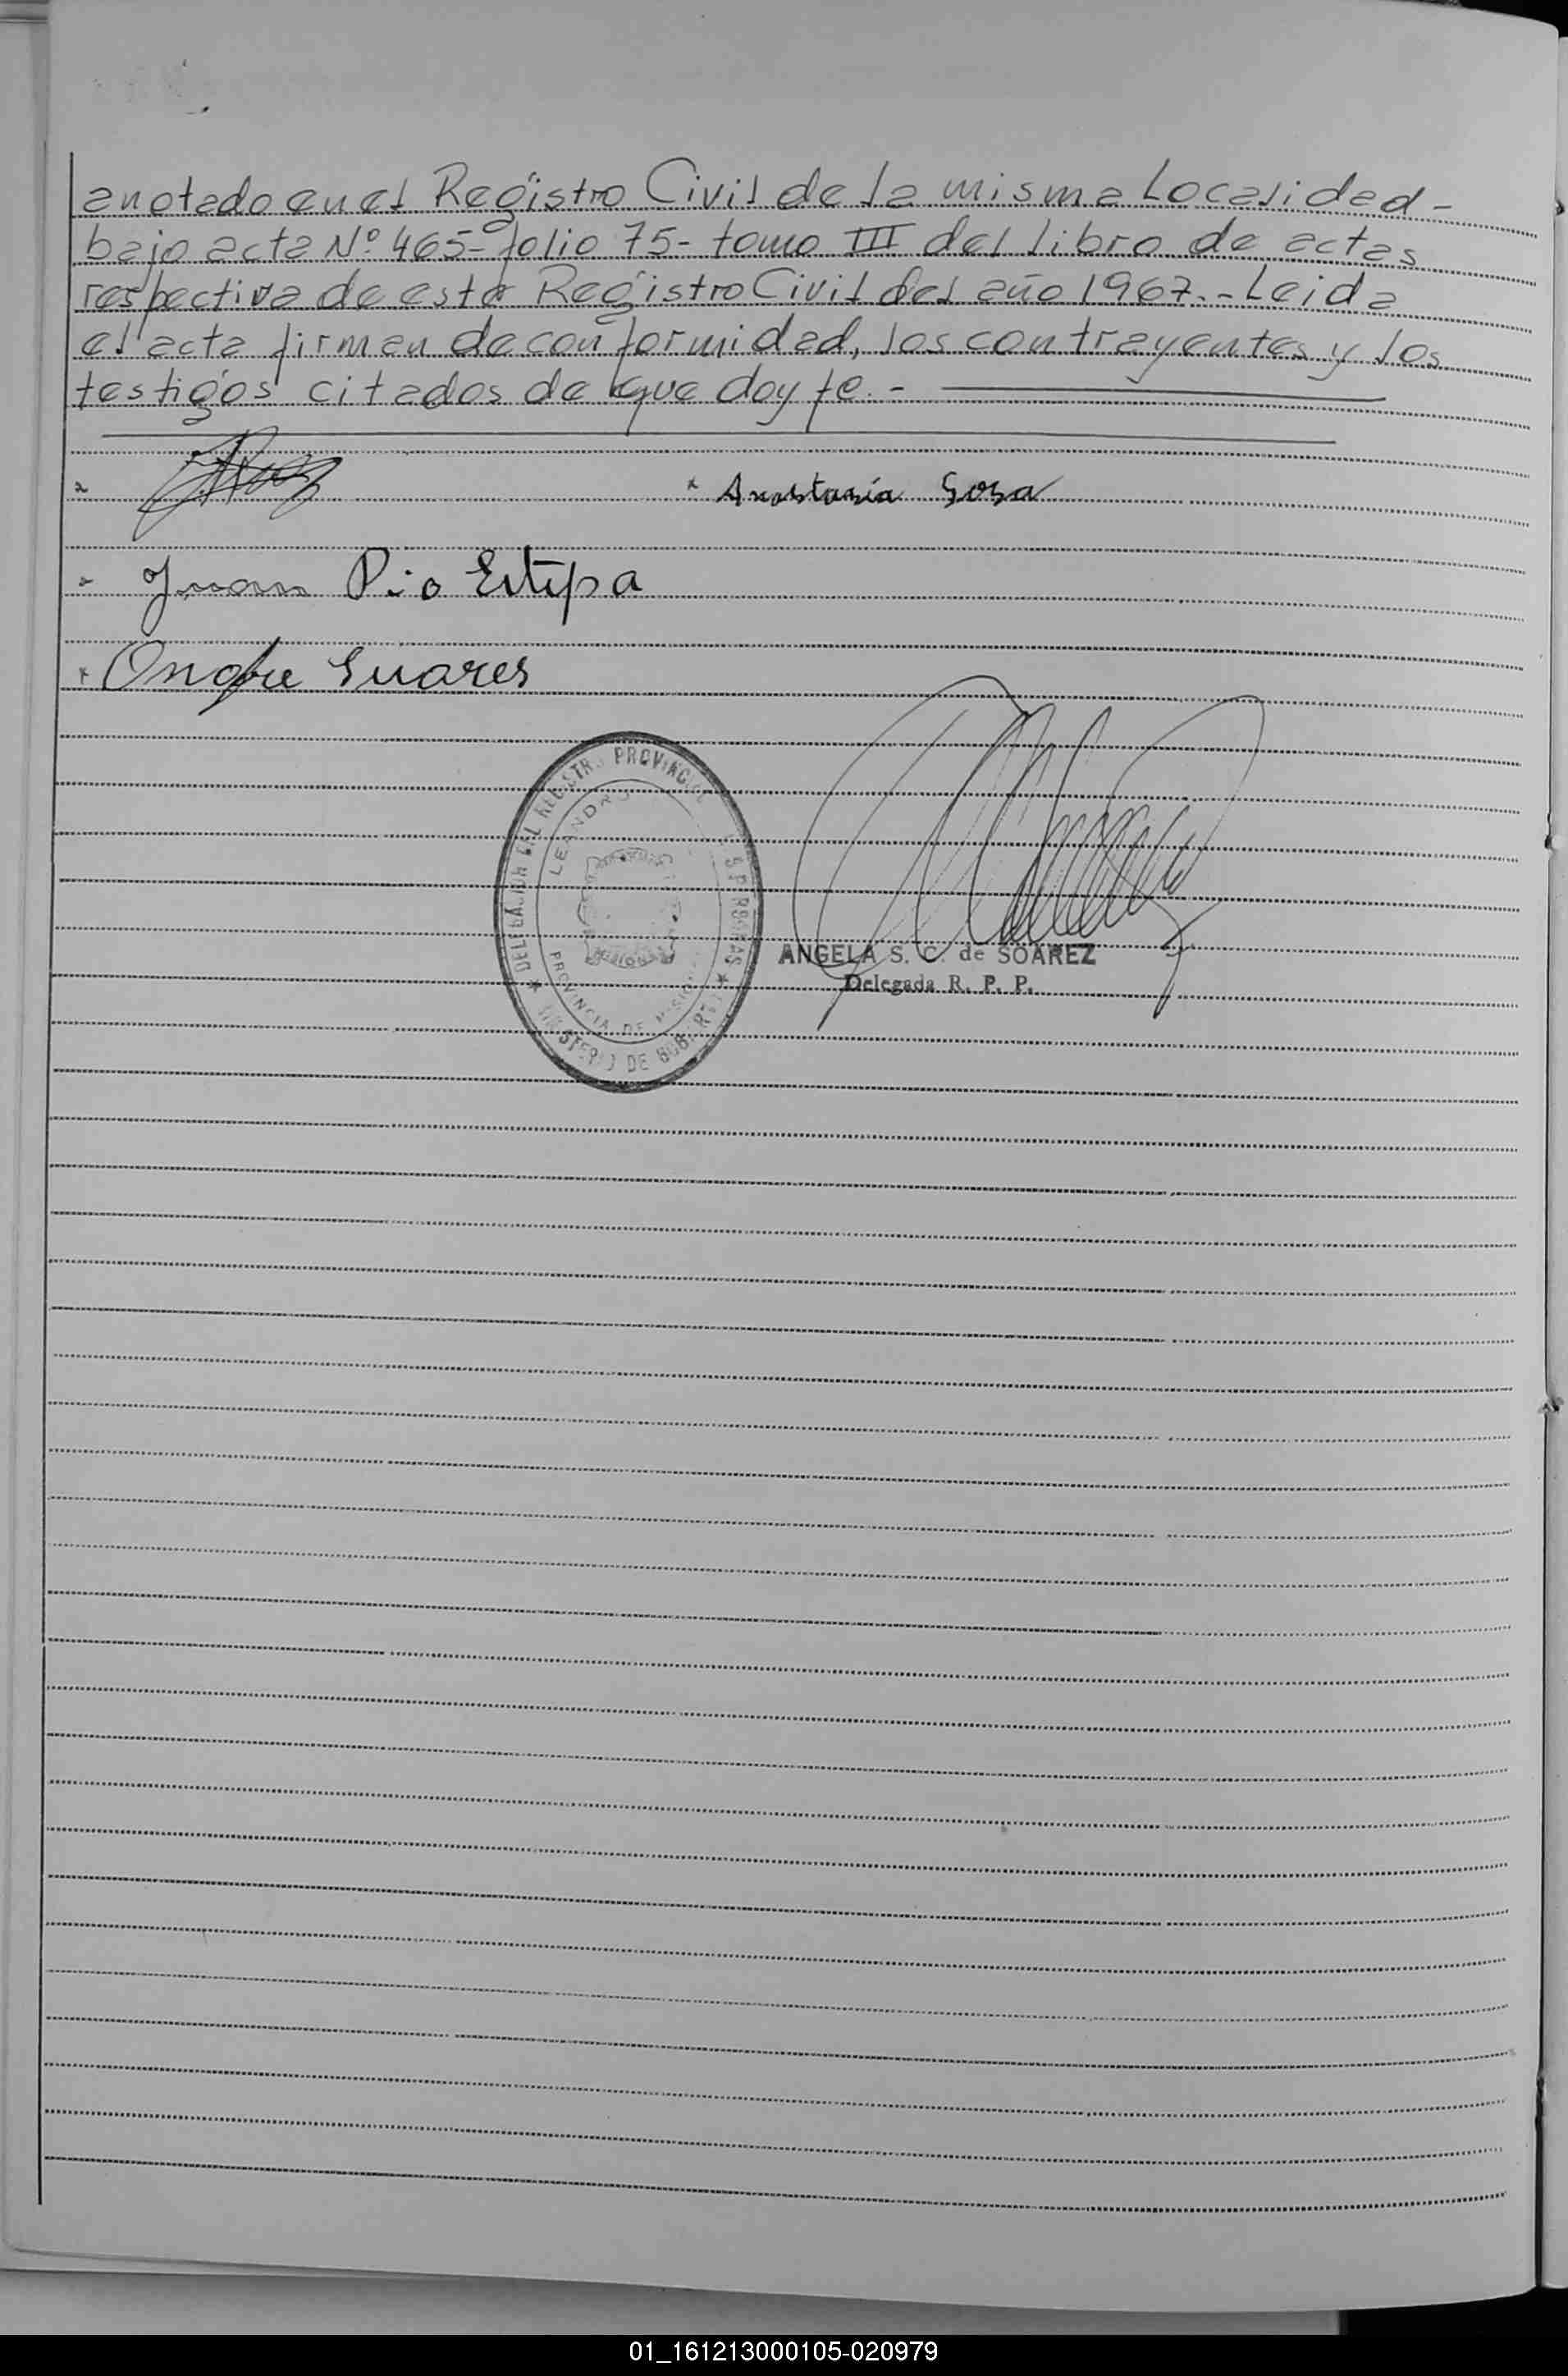 anotado en el Registro Civil de la misma Localidad -
bajo acta Nº 465- folio 75- tomo III del libro de actas
respectiva de esta Registro Civil del año 1967.- Leida
el acta firman de conformidad, los contrayentes y los
testigos citados de que doy fe. -
x Anastasia Sosa
Juan Pio Estepa
x Onofre Suares
DELEGACION DEL REGISTRO PROVINCIAL PERSONAS
LEANDRO
PROVINCIA DE MISIONES
MINISTERIO DE GOBIERNO
ANGELA S. C. de SOAREZ
Delegada R. P. P.
01_161213000105-020979